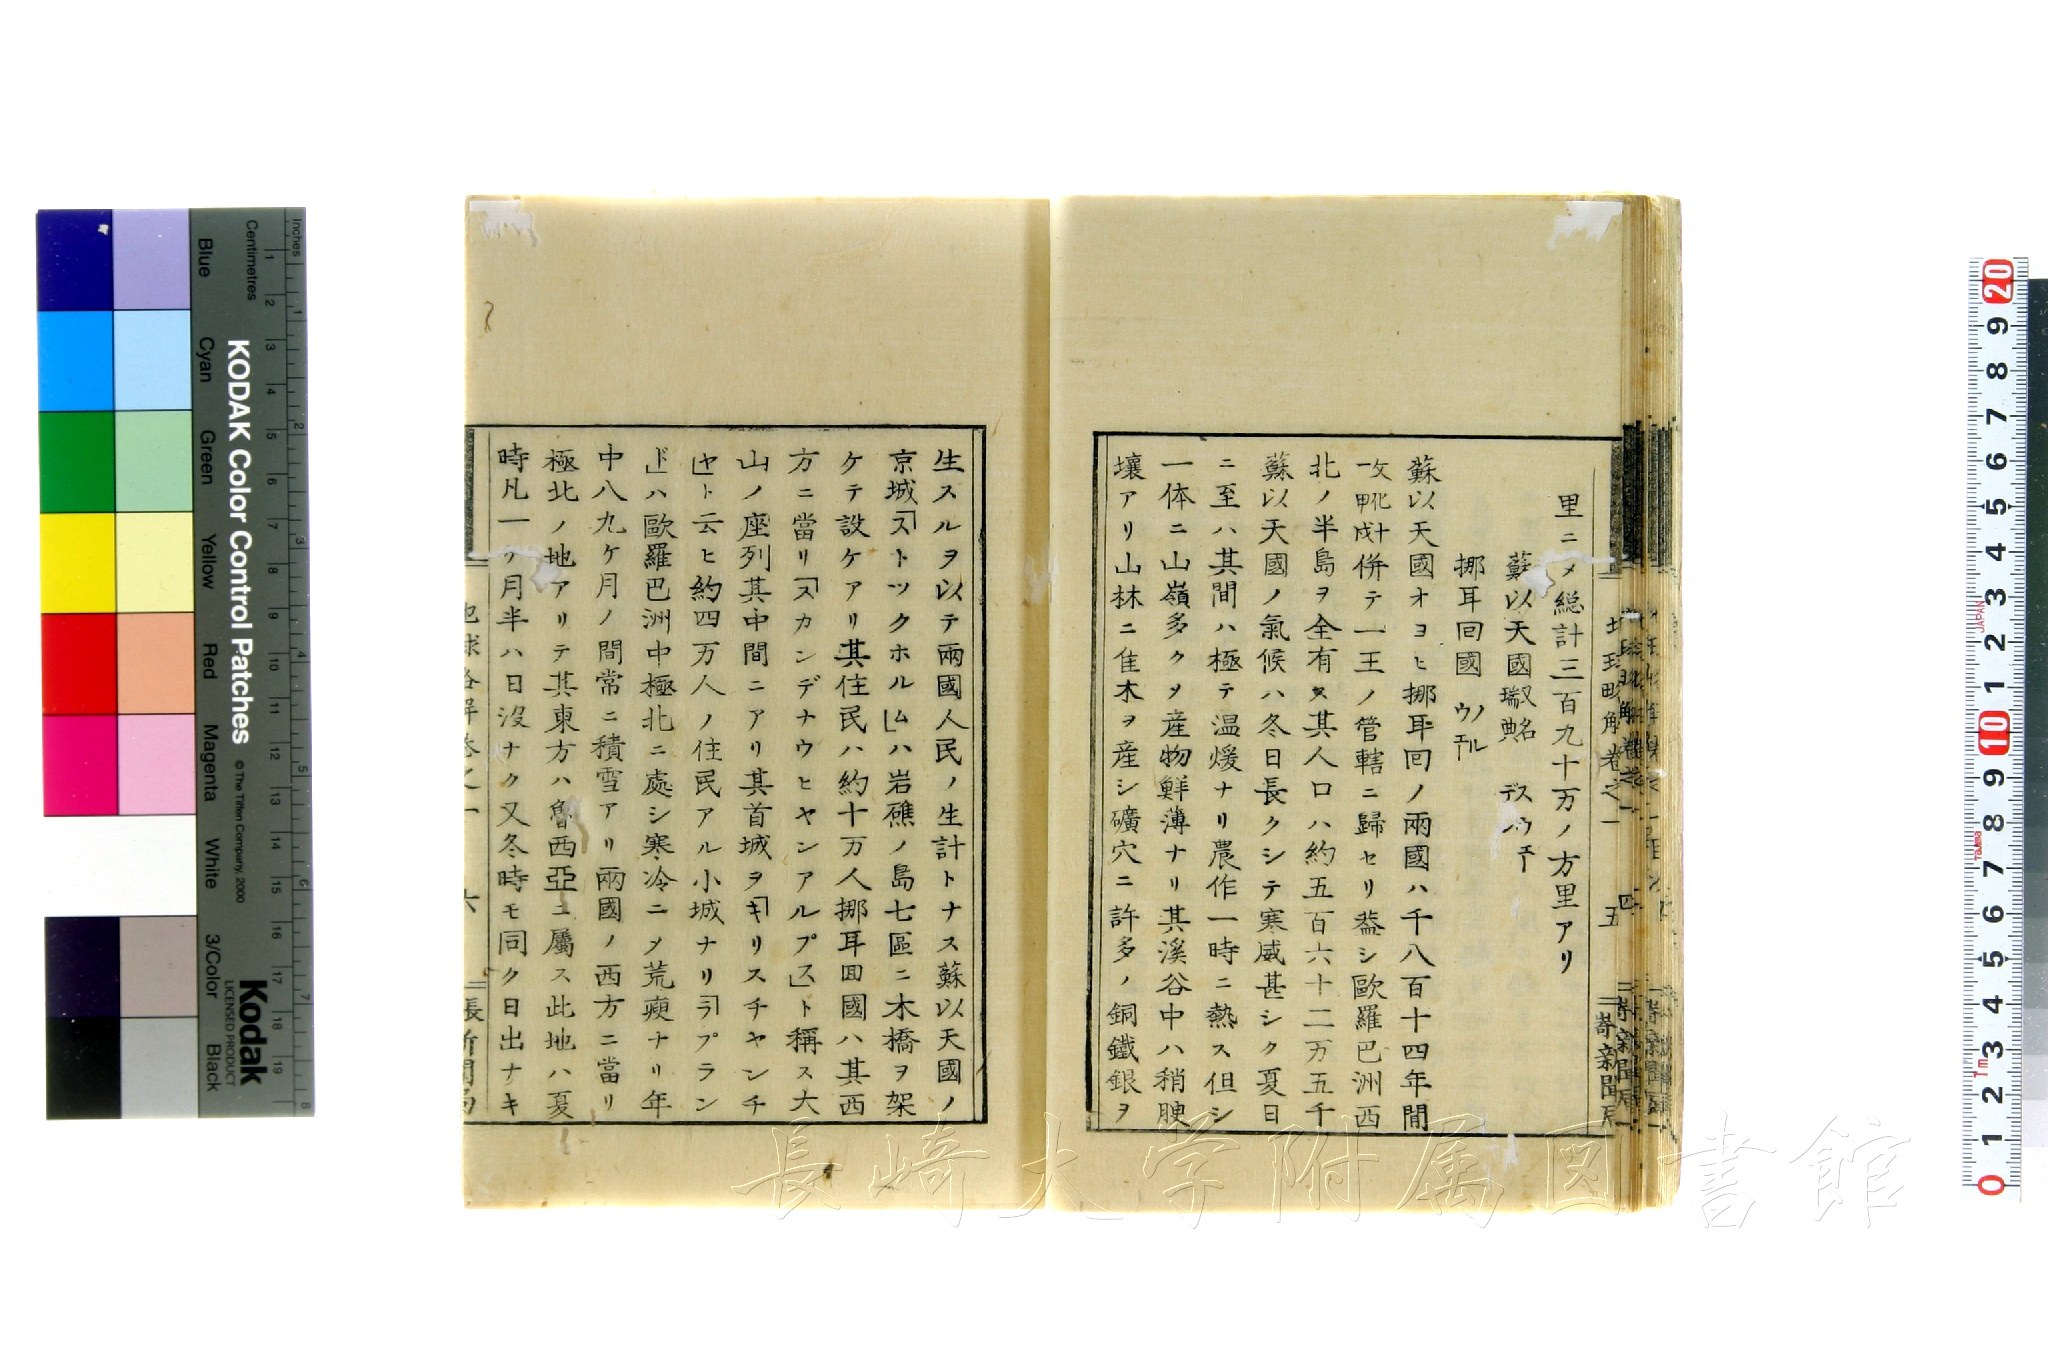 里ニ〆総計三百九十万ノ方里アリ
蘇以天國瑞典 スウエーデン
挪耳回國 ノルウエー
蘇以天國オヨヒ挪耳回ノ兩國ハ千八百十四年間
文化十一甲戌併テ一王ノ管轄ニ歸セリ蓋シ歐羅巴洲西
北ノ半島ヲ全有ス其人口ハ約五百六十二万五千
蘇以天國ノ氣候ハ冬日長クシテ寒威甚シク夏日
ニ至ハ其間ハ極テ温煖ナリ農作一時ニ熟ス但シ
一体ニ山嶺多ク〆産物鮮薄ナリ其溪谷中ハ稍腴
壤アリ山林ニ隹木ヲ産シ礦穴ニ許多ノ銅鐵銀ヲ
五
生スルヲ以テ兩國人民ノ生計トナス蘇以天國ノ
京城「ストツクホルム」ハ岩礁ノ島七區ニ木橋ヲ架
ケテ設ケアリ其住民ハ約十万人挪耳回國ハ其西
方ニ當リ「スカンデナウヒヤンアルプス」ト稱ス大
山ノ座列其中間ニアリ其首城ヲ「キリスチヤンチ
ヤ」ト云ヒ約四万人ノ住民アル小城ナリ「ラプラン
ド」ハ歐羅巴洲中極北ニ處シ寒冷ニ〆荒瘦ナリ年
中八九ケ月ノ間常ニ積雪アリ兩國ノ西方ニ當リ
極北ノ地アリテ其東方ハ魯西亞ニ屬ス此地ハ夏
時凡一ケ月半ハ日沒ナク又冬時モ同ク日出ナキ
六
KODAK Color Control Patches
© The Tiffen Company, 2000
Kodak
LICENSED PRODUCT
Inches
Centimetres
Blue
Cyan
Green
Yellow
Red
Magenta
White
3/Color
Black
長崎大学附属図書館